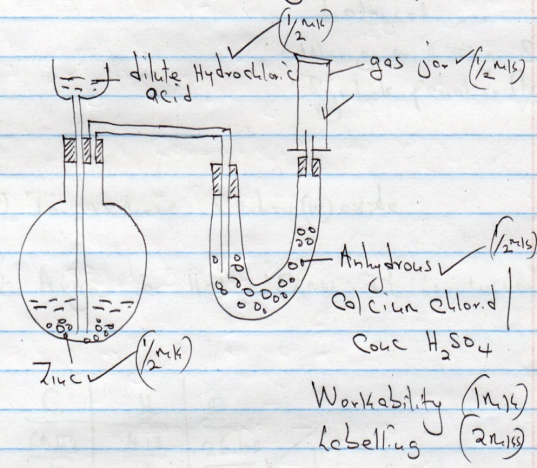 (1/2 mk)
dilute Hydrochloric
acid
gas jar (1/2 mks)
(1/2 mks)
Anhydrous
Calcium chlorid
Conc H₂SO₄
Zinc (1/2 mk)
Workability (1 mk)
Labelling (2 mks)